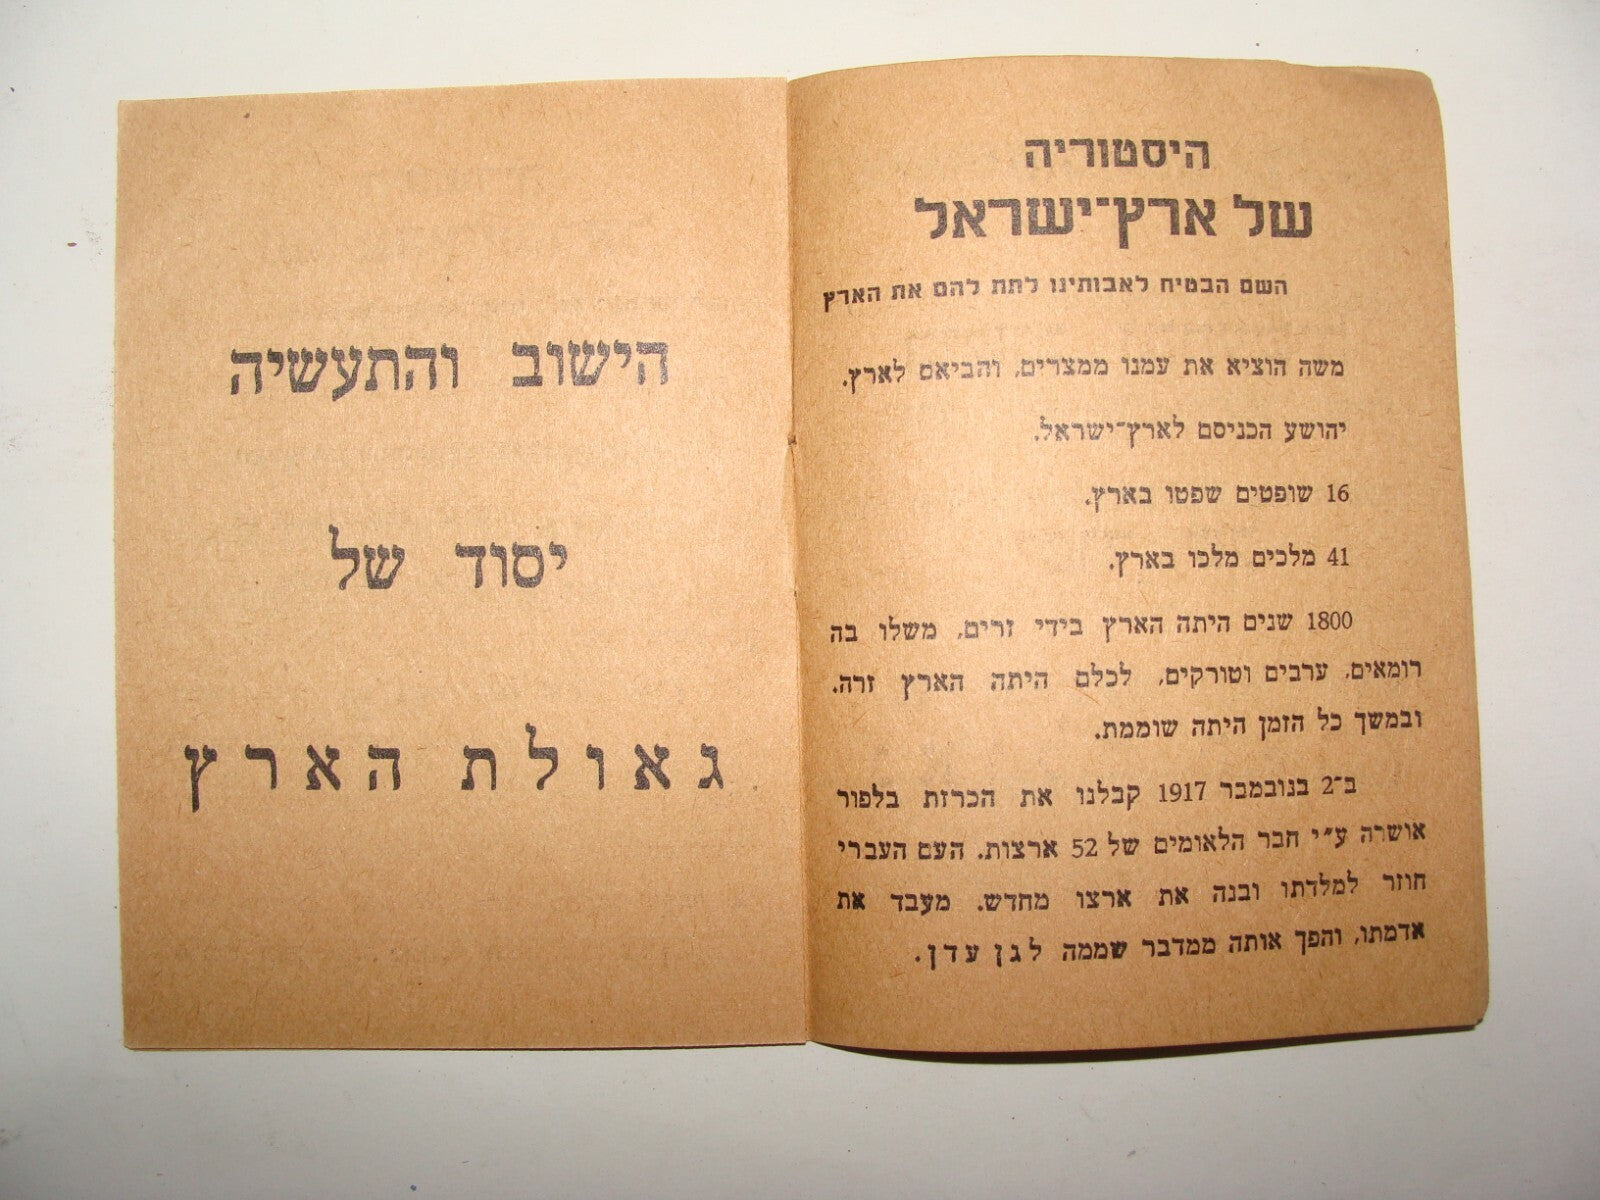 היסטוריה
של ארץ־ישראל
השם הבטיח לאבותינו לתת להם את הארץ
משה הוציא את עמנו ממצרים, והביאם לארץ.
יהושע הכניסם לארץ־ישראל.
16 שופטים שפטו בארץ.
41 מלכים מלכו בארץ.
1800 שנים היתה הארץ בידי זרים, משלו בה
רומאים, ערבים וטורקים, לכלם היתה הארץ זרה.
ובמשך כל הזמן היתה שוממת.
ב־2 בנובמבר 1917 קבלנו את הכרזת בלפור
אושרה ע״י חבר הלאומים של 52 ארצות. העם העברי
חוזר למלדתו ובנה את ארצו מחדש. מעבד את
אדמתו, והפך אותה ממדבר שממה לגן עדן.
הישוב והתעשיה
יסוד של
גאולת הארץ